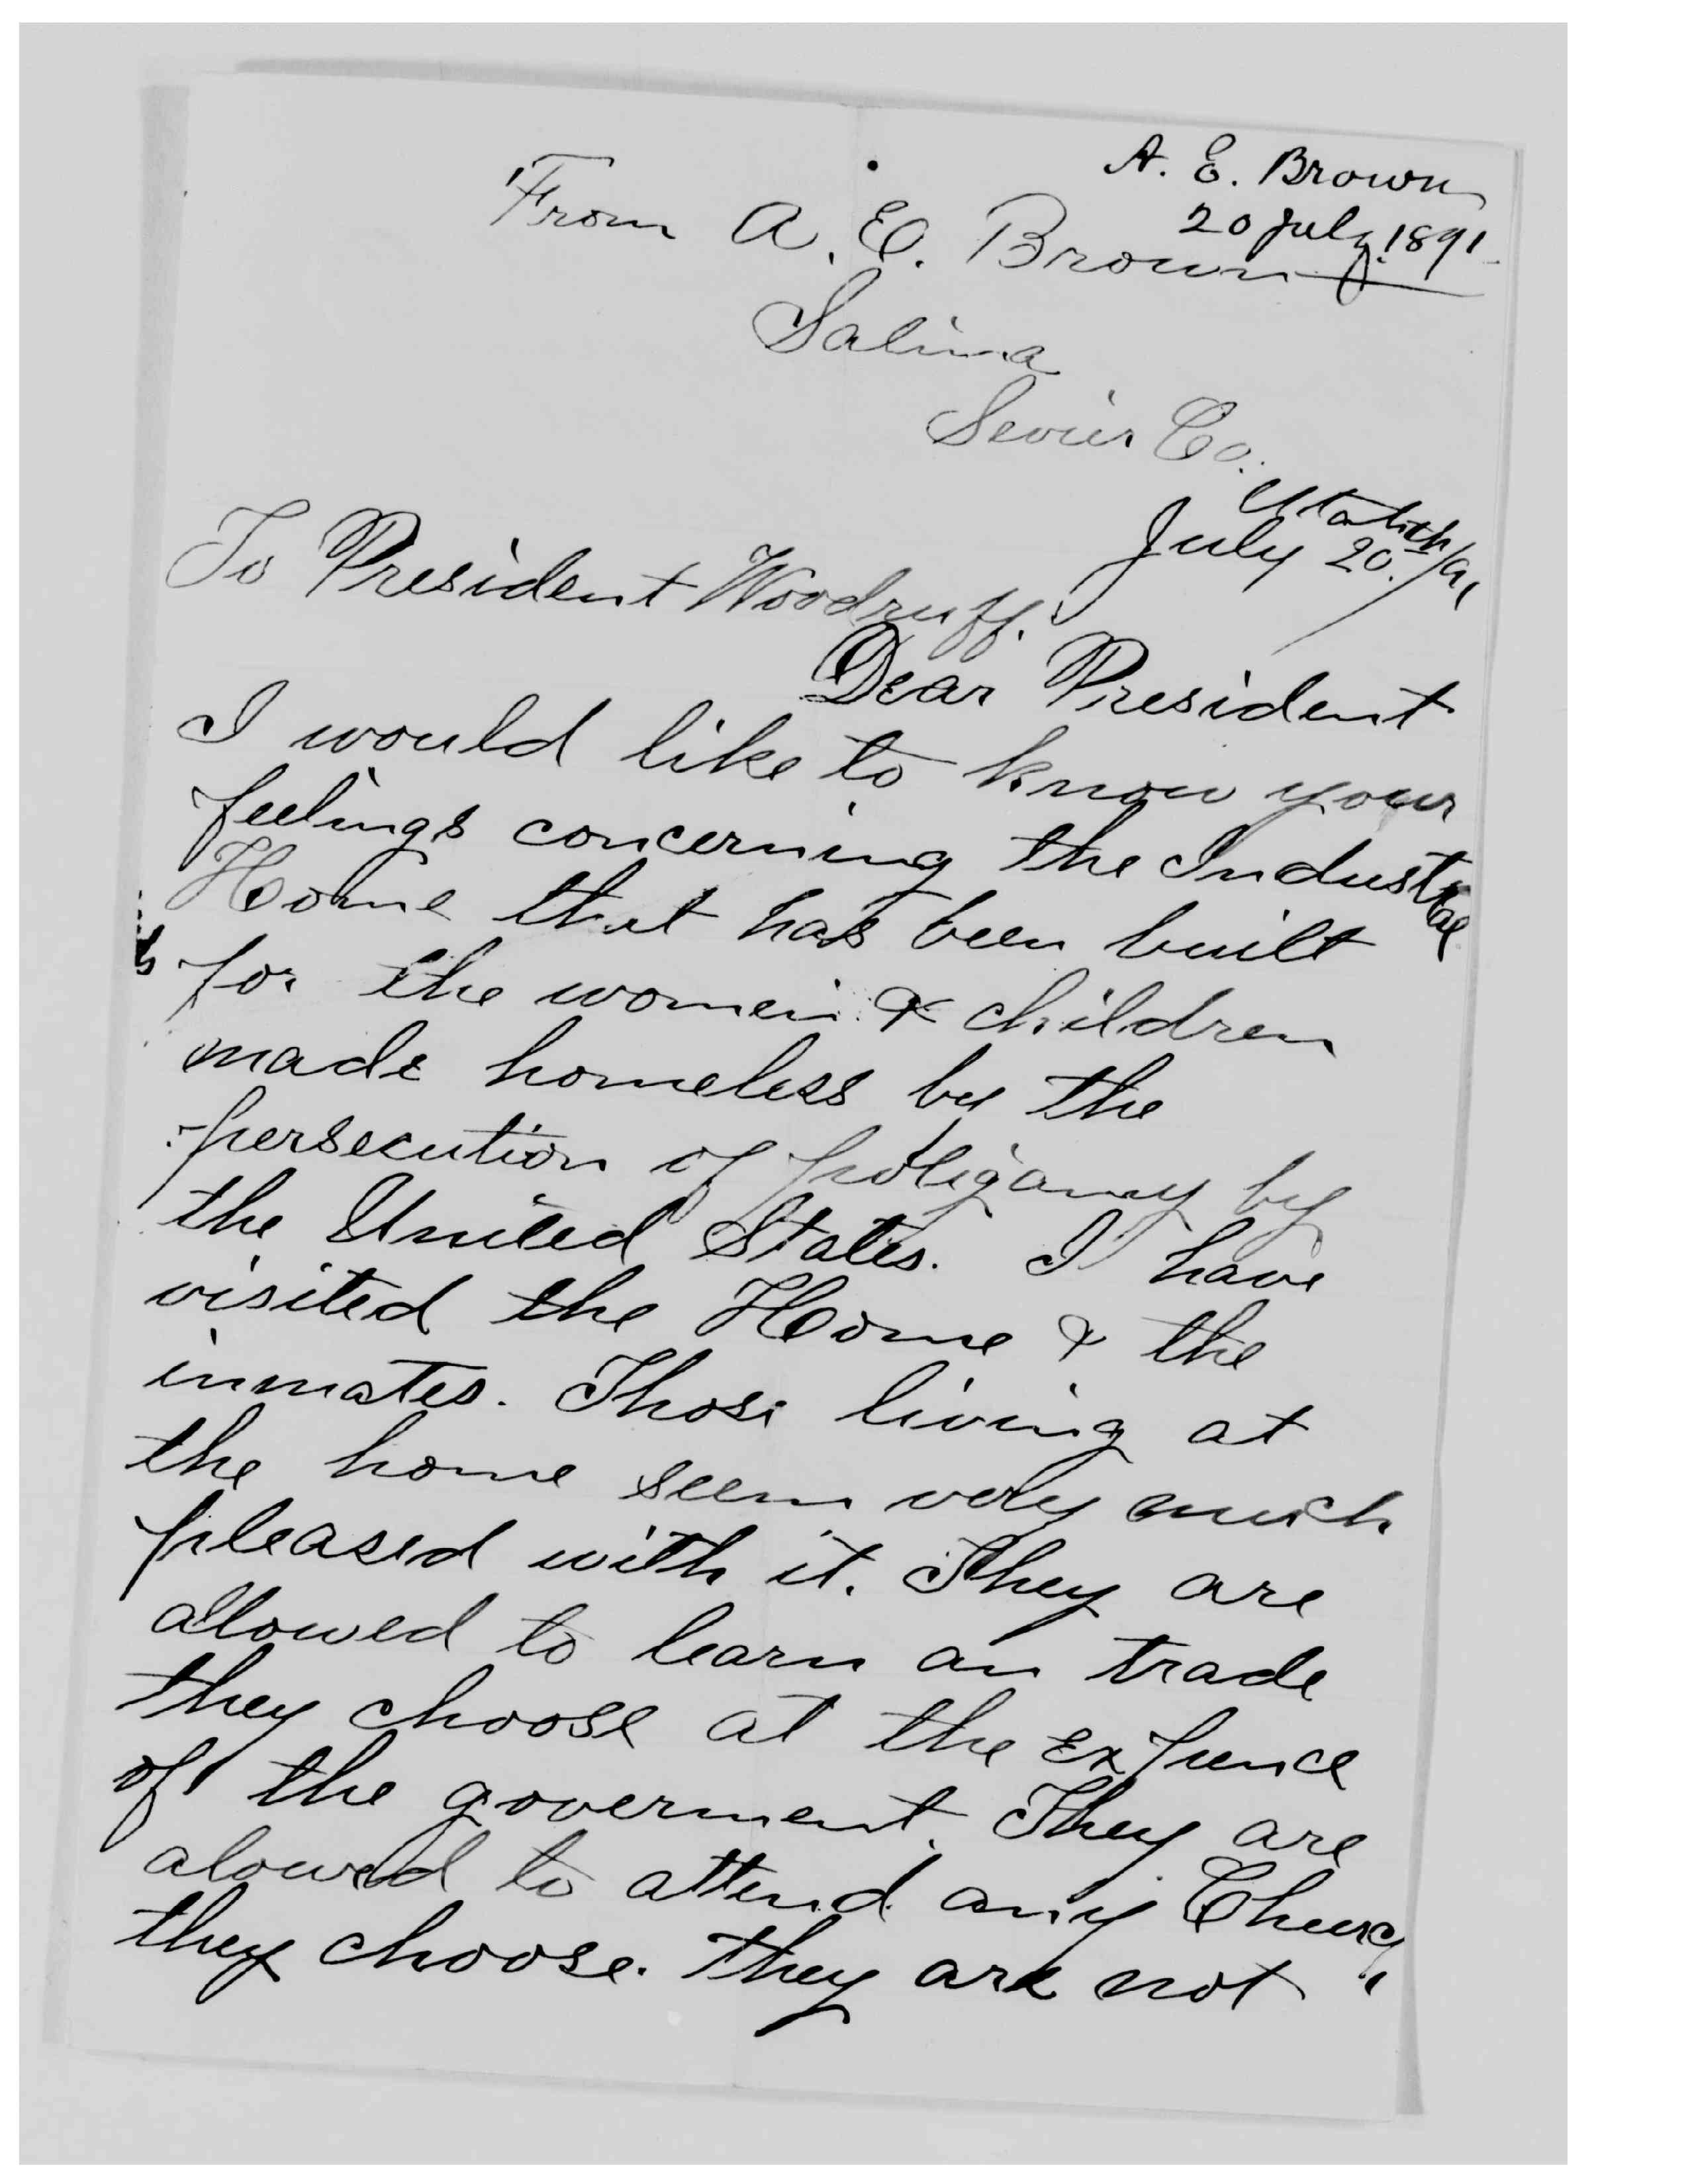 A. E. Brown
20 July 1891
From A. E. Brown
Salina
Sevier Co.
Utah
July 20th/91
To President Woodruff.
Dear President
I would like to know your
feelings concerning the Industrae
Home that has been built
for the women & children
made homeless by the
persecution of poligamy by
the United States. I have
visited the Home & the
inmates. Those living at
the home seem very much
pleased with it. They are
allowed to learn an trade
they choose at the expence
of the goverment. They are
alowed to attend any Church
they choose. they are not